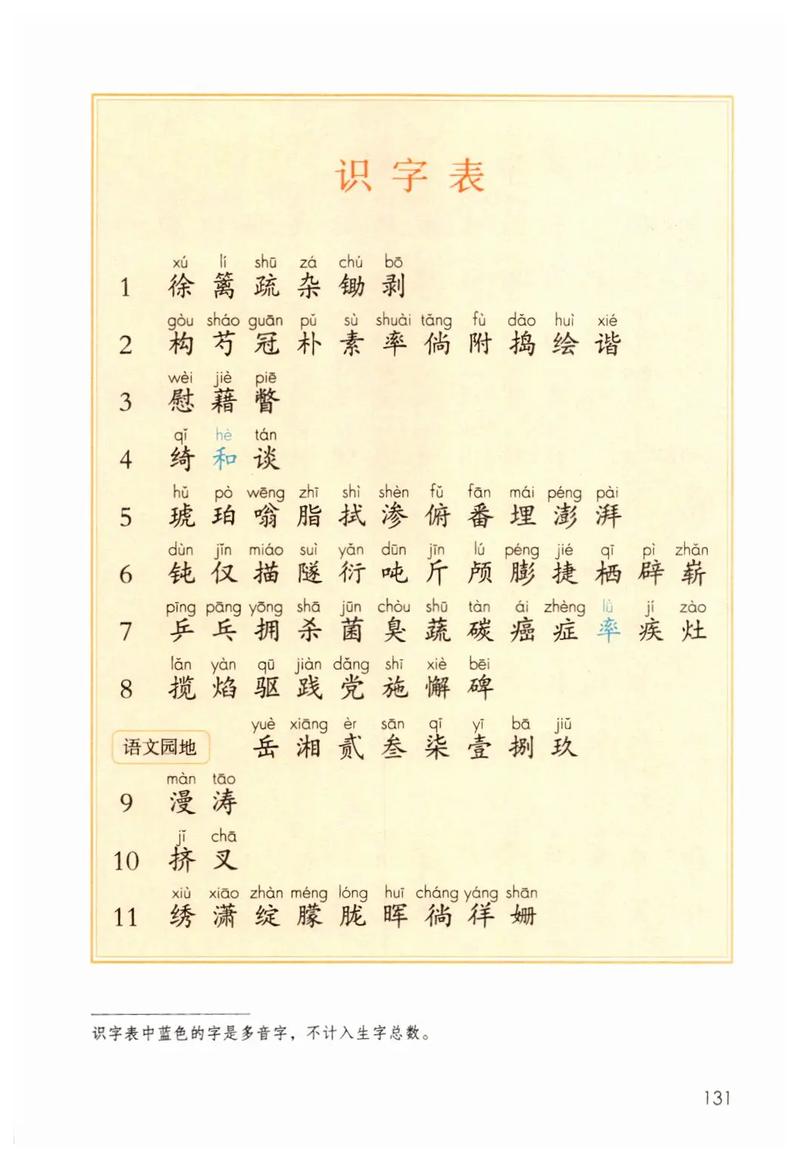 识字表
xú lí shū zá chú bō
1 徐 篱 疏 杂 锄 剥
gòu sháo guān pǔ sù shuài tǎng fù dǎo huì xié
2 构 芍 冠 朴 素 率 倘 附 捣 绘 谐
wèi jiè piē
3 慰 藉 瞥
qǐ hè tán
4 绮 和 谈
hǔ pò wēng zhī shì shèn fǔ fān mái péng pài
5 琥 珀 嗡 脂 拭 渗 俯 番 埋 澎 湃
dùn jǐn miáo suì yǎn dūn jīn lú péng jié qī pì zhǎn
6 钝 仅 描 隧 衍 吨 斤 颅 膨 捷 栖 辟 崭
pīng pāng yōng shā jūn chòu shū tàn ái zhèng lǜ jí zào
7 乒 乓 拥 杀 菌 臭 蔬 碳 癌 症 率 疾 灶
lǎn yàn qū jiàn dǎng shī xiè bēi
8 揽 焰 驱 践 党 施 懈 碑
yuè xiāng èr sān qī yī bā jiǔ
语文园地 岳 湘 贰 叁 柒 壹 捌 玖
màn tāo
9 漫 涛
jǐ chā
10 挤 叉
xiù xiāo zhàn méng lóng huī cháng yáng shān
11 绣 潇 绽 朦 胧 晖 徜 徉 姗
识字表中蓝色的字是多音字，不计入生字总数。
131